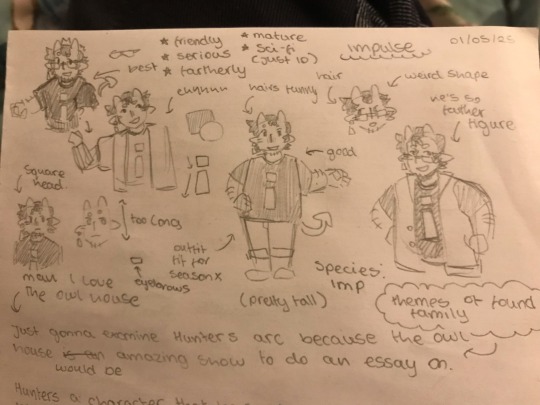 * friendly
* mature
impulse
01/05/25
* serious
* sci-fi
(just 10)
best
* fartherly
ehhhhh
hairs funny
hair
weird shape
he's so
farther
figure
good
square
head
too long
eyebrows
outfit
fit for
season x
(pretty tall)
species:
imp
man I love
the owl house
themes of found
family
Just gonna examine Hunters arc because the owl
house is an amazing show to do an essay on.
would be
Hunters a character that